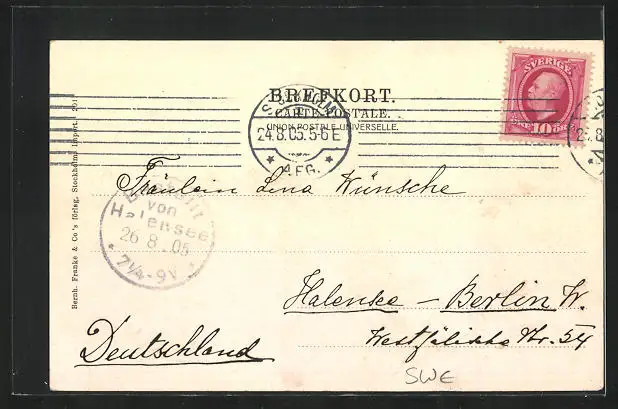 BREFKORT.
CARTE POSTALE.
UNION POSTALE UNIVERSELLE.
SVERIGE
10
STOCKHOLM
24.8.05.5-6E
AFG.
Fräulein Lena Wünsche
von
Halensee
26 8.05
7¼-9V
Halensee – Berlin W.
Westfälische Str. 54
Deutschland
SWE
Bernh. Franke & Co's förlag, Stockholm. Import. 201